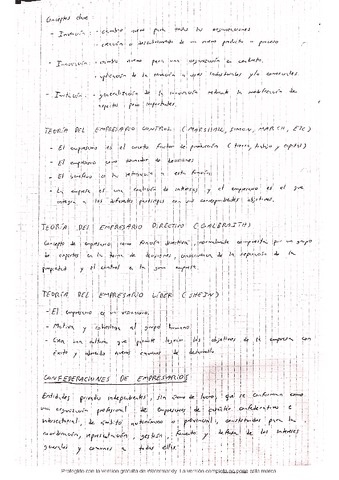 Conceptos clave
- Invención: - cambio nuevo para todas las organizaciones
- creación o descubrimiento de un nuevo producto o proceso
- Innovación: - cambio nuevo para una organización en contrato
- aplicación de la invención a usos industriales y/o comerciales
- Imitación: - generalización de la innovación mediante la modificación de
aspectos poco importantes.
TEORÍA DEL EMPRESARIO CONTROL (MARSHALL, SIMON, MARCH, ETC)
- El empresario es el cuarto factor de producción (tierra, trabajo y capital)
- El empresario como tomador de decisiones
- El beneficio es la retribución a esta función
- La empresa es una coalición de intereses y el empresario es el que
integra a los diferentes partícipes con sus correspondientes objetivos.
TEORÍA DEL EMPRESARIO DIRECTIVO (GALBRAITH)
Concepto de empresario como función directiva, normalmente compuesta por un grupo
de expertos en la toma de decisiones, consecuencia de la separación de la
propiedad y el control a la gran empresa.
TEORÍA DEL EMPRESARIO LÍDER (SHEIN)
- El empresario es un visionario.
- Motiva y cohesiona al grupo humano
- Crea una cultura que permite lograr los objetivos de la empresa con
éxito y abriendo nuevos caminos de desarrollo
CONFEDERACIONES DE EMPRESARIOS
Entidades privadas independientes, sin ánimo de lucro, que se conforman como
una organización profesional de empresarios de carácter confederativo e
intersectorial, de ámbito autonómico o provincial, constituidas para la
coordinación, representación, gestión, fomento y defensa de los intereses
generales y comunes a todos ellos.
Protegido con la versión gratuita de Watermarkly. La versión completa no pone esta marca.